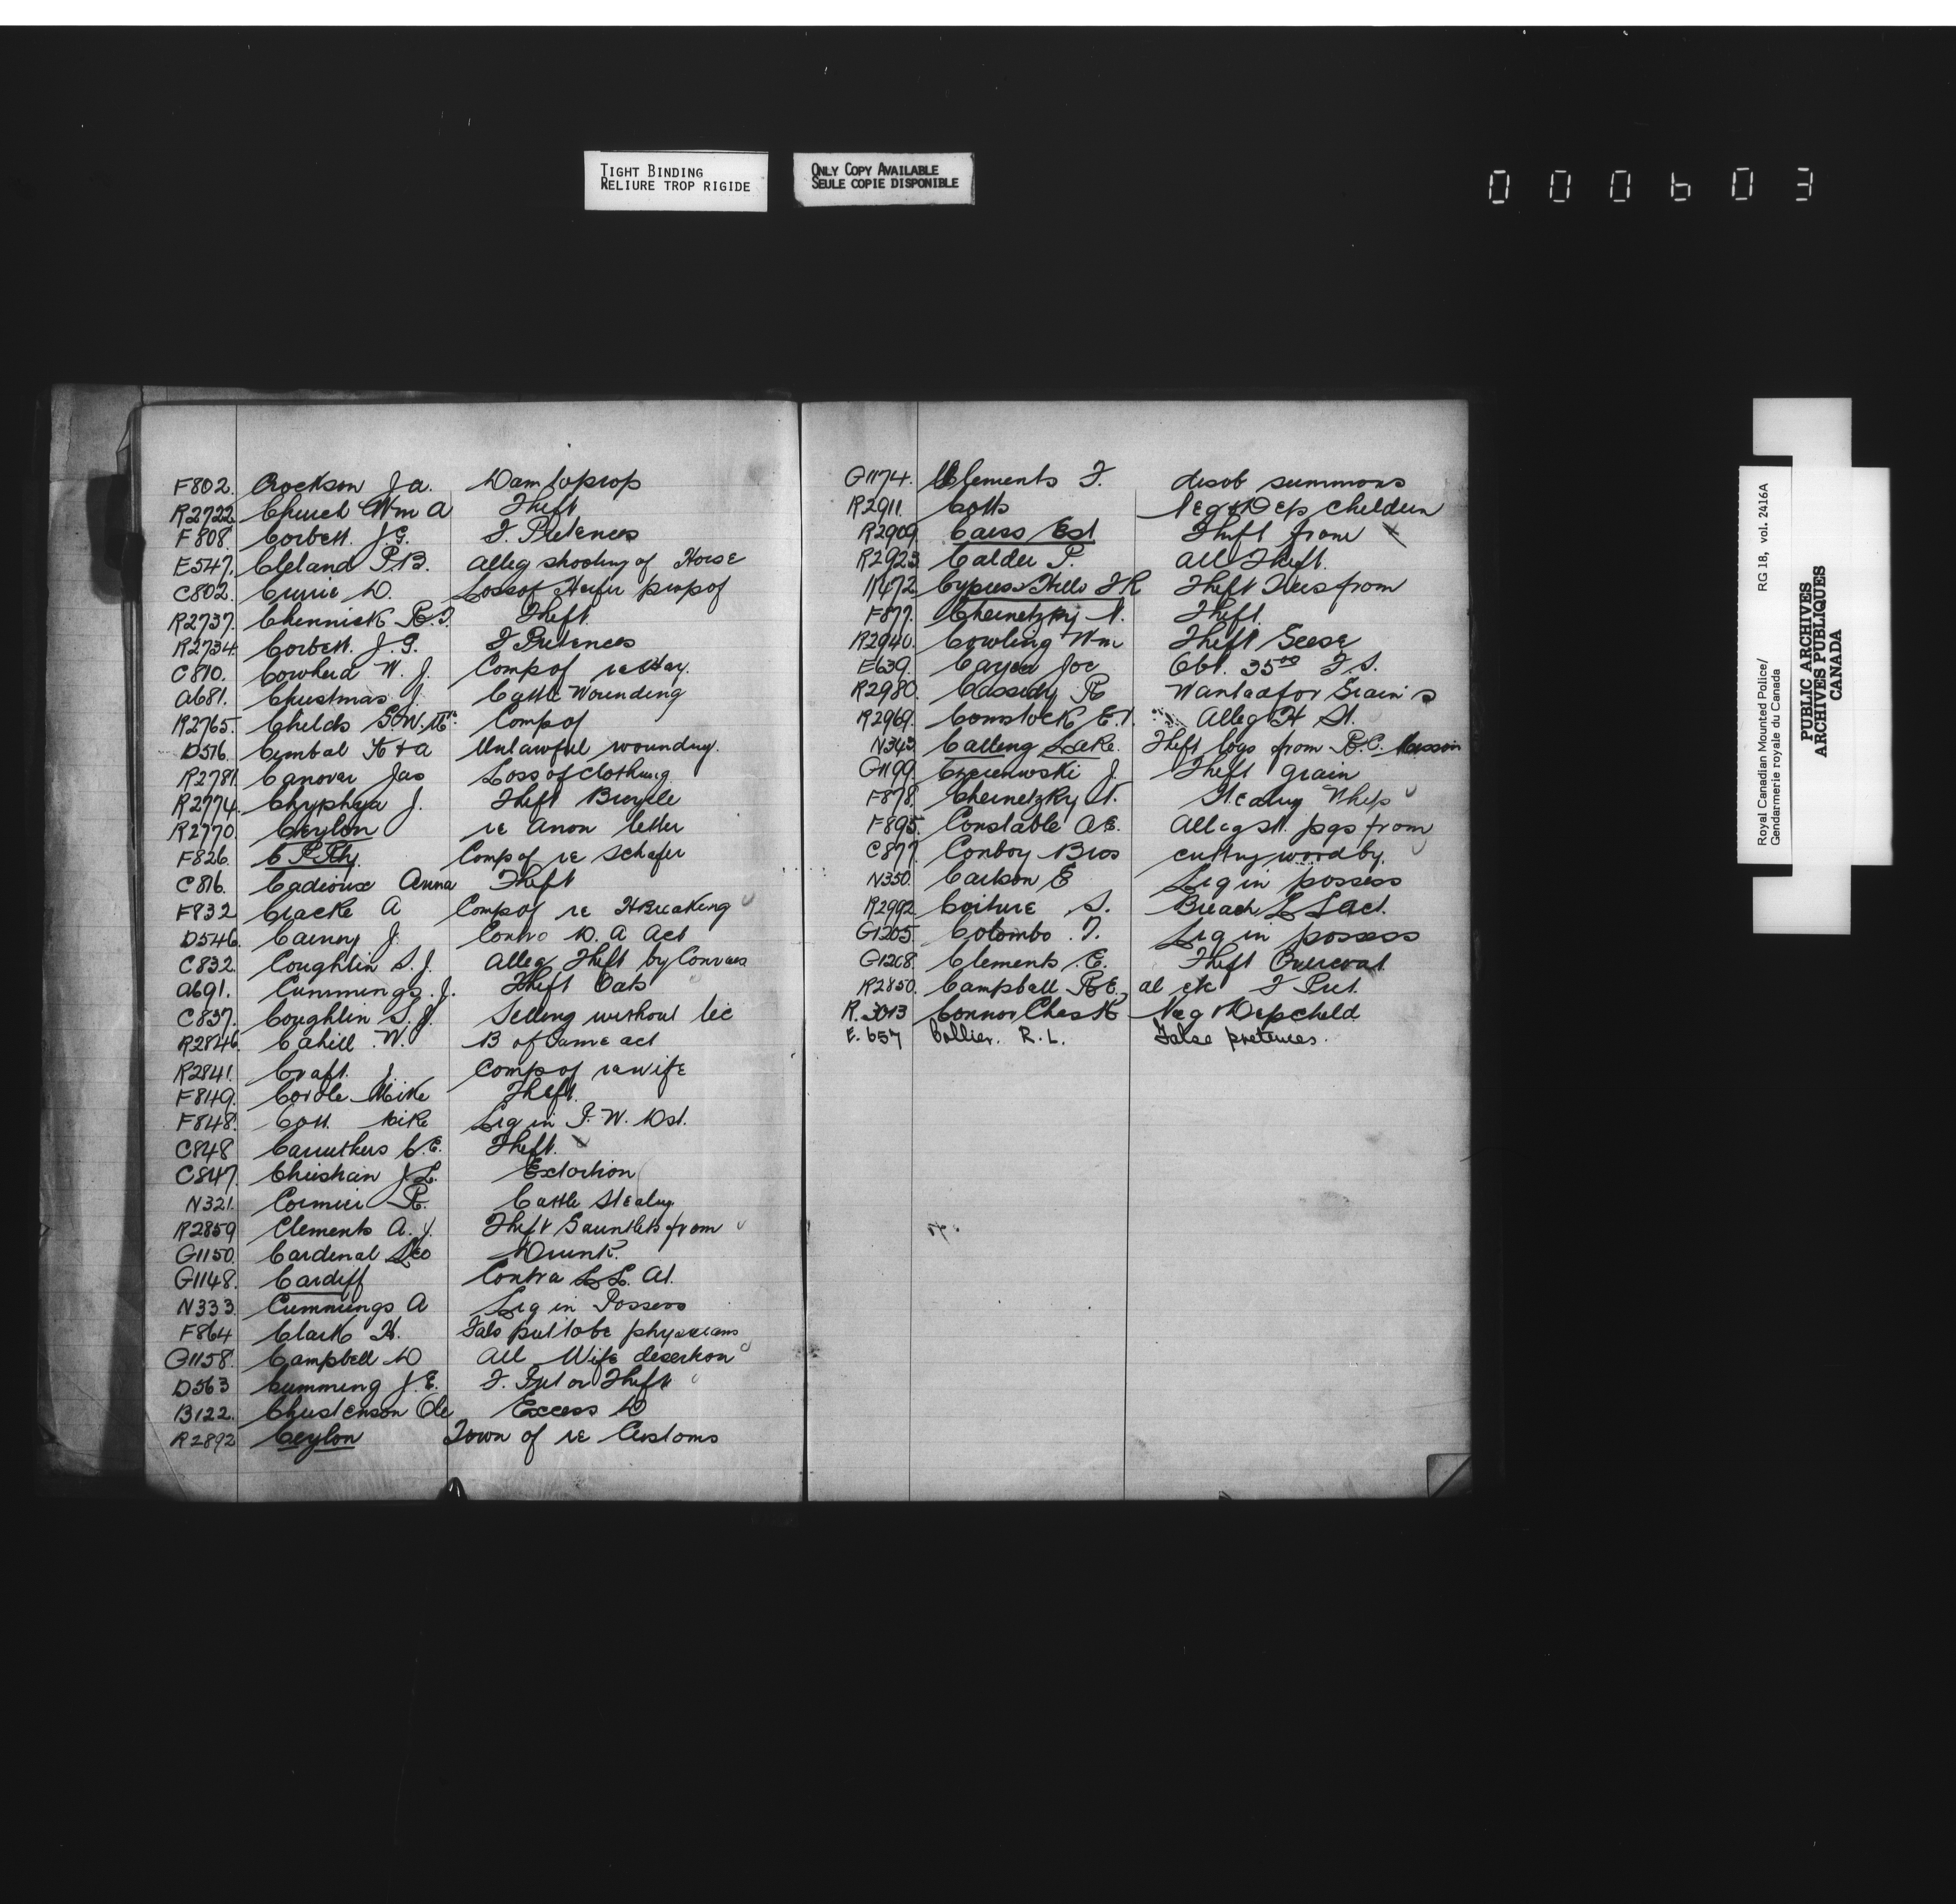 TIGHT BINDING
RELIURE TROP RIGIDE
ONLY COPY AVAILABLE
SEULE COPIE DISPONIBLE
000603
F802. Crockson J a. Dam to prop
R2722 Church Wm A Theft
F808. Corbett. J.G. F. Pretences
E547. Cleland P.B. Alleg shooting of Horse
C802. Currie D. Loss of Heifer prop of
R2737. Chennick R.J. Theft.
R2734. Corbett. J.G. F Pretences
C810. Cowherd W. J. Comp of re
A681. Christmas J. Cattle Wounding
R2765. Childs G.W. Comp of
D576. Cymbal K & A Unlawful wounding.
R2781. Canovar Jas Loss of clothing.
R2774. Chyphya J. Theft Bicycle
R2770. Ceylon re Anon letter
F826. C P Rly. Comp of re Schafer
C816. Cadioux Anna Theft
F832 Cracke A Comp of re HBreaking
D546. Cairney J. Contra D. A Act
C832. Coughlin S. J. Alleg Theft by
A691. Cummings. J. Theft Oats
C837. Coughlin S. J. Selling without lic
R2846. Cahill W. B of Game act
R2841. Craft. J Comp of re wife
F849. Cordle Mike Theft.
F848. Cott Mike Liq in P. W. Dst.
C848 Carruthers C.E. Theft.
C847. Christian J.L. Extortion
N321. Cormier R. Cattle Stealing
R2859 Clements A. J. Theft Gauntlets from
G1150. Cardinal Leo Drunk.
G1148. Cardiff Contra L L. At.
N333. Cummings A Liq in Possess
F864 Clark H. Fals pret to be physicians
G1158. Campbell D All Wife desertion
D563 Cumming J.E. F. Pret or Theft
B122. Christenson Ole Excess D
R2892 Ceylon Town of re Customs
G1174. Clements F. disob summons
R2911. Cotts Neg & Dep children
R2909. Caess Est Theft from
R2923. Calder P. All Theft.
K472 Cypress Hills F R Theft Trees from
F877. Chernetzky N. Theft.
R2940. Cowling Wm Theft Geese
E639. Cayer Joe Obt. 35.00 F S.
R2980. Cassidy R Wanted for Grain s
R2969. Comstock E. Alleg H St.
N343. Calling Lake. Theft logs from R.C. Mission
G1199. J. Theft grain
F878. Chernetzky N. Stealing Whip
F895. Constable A E. Alleg st. pgs from
C877. Conboy Bros cutting wood by.
N350. Carlson E Liq in possess
R2992. Coiture S. Breach L L act.
G1205. Colombo. T. Liq in possess
G1208. Clements. E. Theft Overcoat
R2850. Campbell R E., al etc F Pret.
R. 3013 Connor Chas K Neg & Dep child.
E. 657 Collier. R. L. False pretences.
Royal Canadian Mounted Police/ RG 18, vol. 2416A
Gendarmerie royale du Canada
PUBLIC ARCHIVES
ARCHIVES PUBLIQUES
CANADA